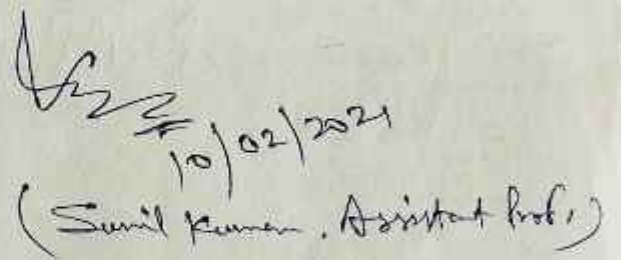 10/02/2021
(Sunil Kumar, Assistant Prof.)